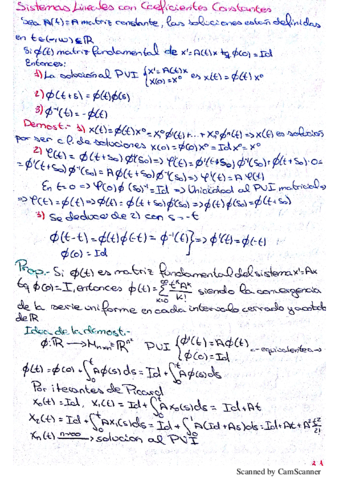 Sistemas Lineales con Coeficientes Constantes
Sea A(t)=A matriz constante, las soluciones están definidas
en t∈(-∞,∞)∈ℝ
Si ϕ(t) matriz fundamental de x'=A(t)x tq ϕ(0)=Id
Entonces:
1) La solución al PVI {x'=A(t)x x(0)=x⁰ es x(t)=ϕ(t)x⁰
2) ϕ(t+s)=ϕ(t)ϕ(s)
3) ϕ⁻¹(t)=-ϕ(t)
Demost.- 1) x(t)=ϕ(t)x⁰=x₁⁰ϕ¹(t)+...+xₙ⁰ϕⁿ(t) => x(t) es solución
por ser c.l. de soluciones x(0)=ϕ(0)x⁰=Id x⁰=x⁰
2) φ(t)=ϕ(t+s₀)ϕ⁻¹(s₀) => φ'(t)=ϕ'(t+s₀)ϕ⁻¹(s₀)+ϕ(t+s₀)·0=
=ϕ'(t+s₀)ϕ⁻¹(s₀)=Aϕ(t+s₀)ϕ⁻¹(s₀) => φ'(t)=Aφ(t)
En t=0 => φ(0)=ϕ(s₀)ϕ(s₀)⁻¹=Id => Unicidad al PVI matricial =>
=> φ(t)=ϕ(t) => ϕ(t)=ϕ(t+s₀)ϕ⁻¹(s₀) => ϕ(t)ϕ(s₀)=ϕ(t+s₀)
3) Se deduce de 2) con s=-t
ϕ(t-t)=ϕ(t)ϕ(-t)=ϕ⁻¹(t) } => ϕ⁻¹(t)=ϕ(-t)
ϕ(0)=Id
Prop.- Si ϕ(t) es matriz fundamental del sistema x'=Ax
tq ϕ(0)=I, entonces ϕ(t)=∑ₖ₌₀^∞ tᵏAᵏ/k! siendo la convergencia
de la serie uniforme en cada intervalo cerrado y acotado
de ℝ
Idea de la demost.-
ϕ:ℝ→Mₙₓₙ=ℝⁿ² PVI {ϕ'(t)=Aϕ(t) ϕ(0)=Id - equivalente →
ϕ(t)=ϕ(0)+∫₀ᵗAϕ(s)ds=Id+∫₀ᵗAϕ(s)ds
Por iterantes de Picard
x₀(t)=Id, x₁(t)=Id+∫₀ᵗAx₀(s)ds=Id+At
x₂(t)=Id+∫₀ᵗAx₁(s)ds=Id+∫₀ᵗA(Id+As)ds=Id+At+A²t²/2!
xₙ(t) n→∞ → solución al PVI
21
Scanned by CamScanner